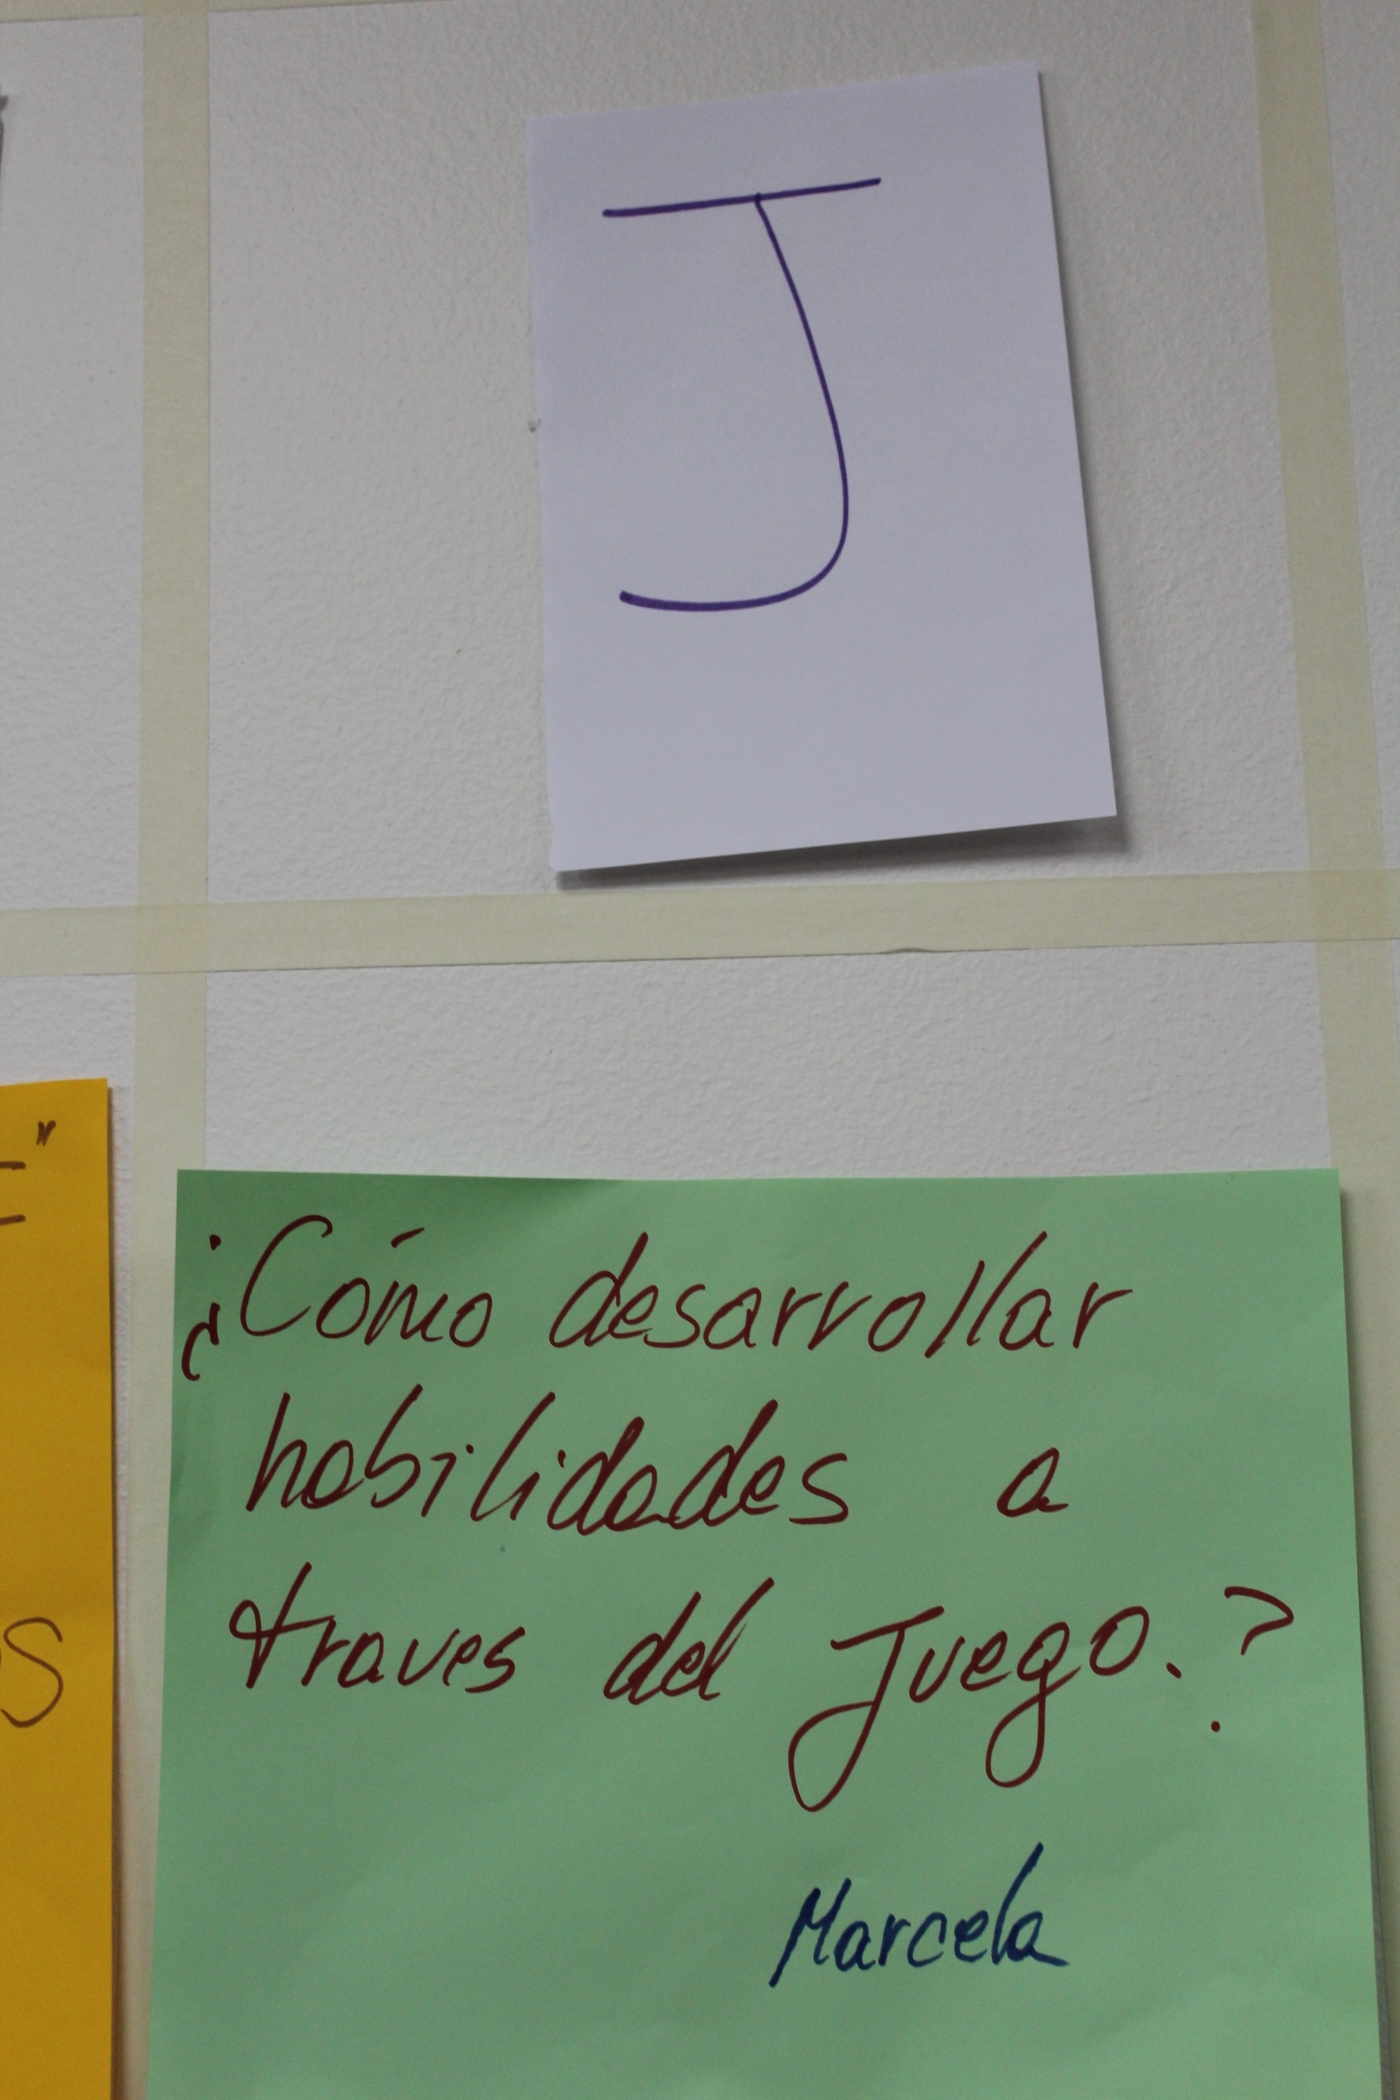 J
¿Cómo desarrollar
habilidades a
traves del Juego.?
Marcela